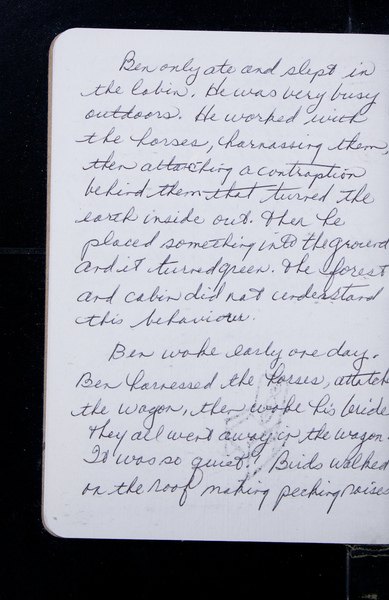 Ben only ate and slept in
the cabin. He was very busy
outdoors. He worked with
the horses, harnassing them,
then attatching a contraption
behind them that turned the
earth inside out. Then he
placed something into the ground
and it turned green. The forest
and cabin did not understand
this behaviour.
Ben woke early one day.
Ben harnessed the horses, attatch
the wagon, then woke his bride
They all went away in the wagon.
It was so quiet! Birds walked
on the roof making pecking noises